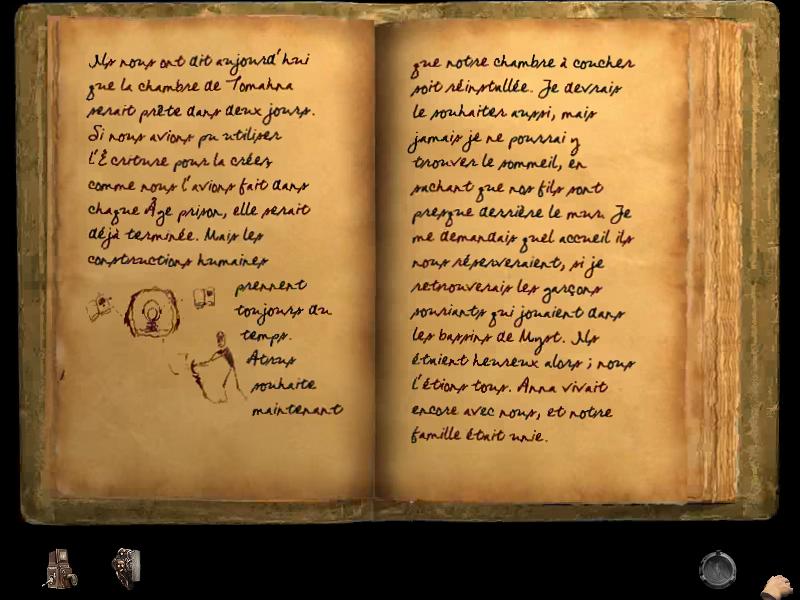 Ils nous ont dit aujourd'hui
que la chambre de Tomahna
serait prête dans deux jours.
Si nous avions pu utiliser
l'Écriture pour la créer
comme nous l'avions fait dans
chaque Âge prison, elle serait
déjà terminée. Mais les
constructions humaines
prennent
toujours du
temps.
Atrus
souhaite
maintenant
que notre chambre à coucher
soit réinstallée. Je devrais
le souhaiter aussi, mais
jamais je ne pourrai y
trouver le sommeil, en
sachant que nos fils sont
presque derrière le mur. Je
me demandais quel accueil ils
nous réserveraient, si je
retrouverais les garçons
souriants qui jouaient dans
les bassins de Myst. Ils
étaient heureux alors ; nous
l'étions tous. Anna vivait
encore avec nous, et notre
famille était unie.